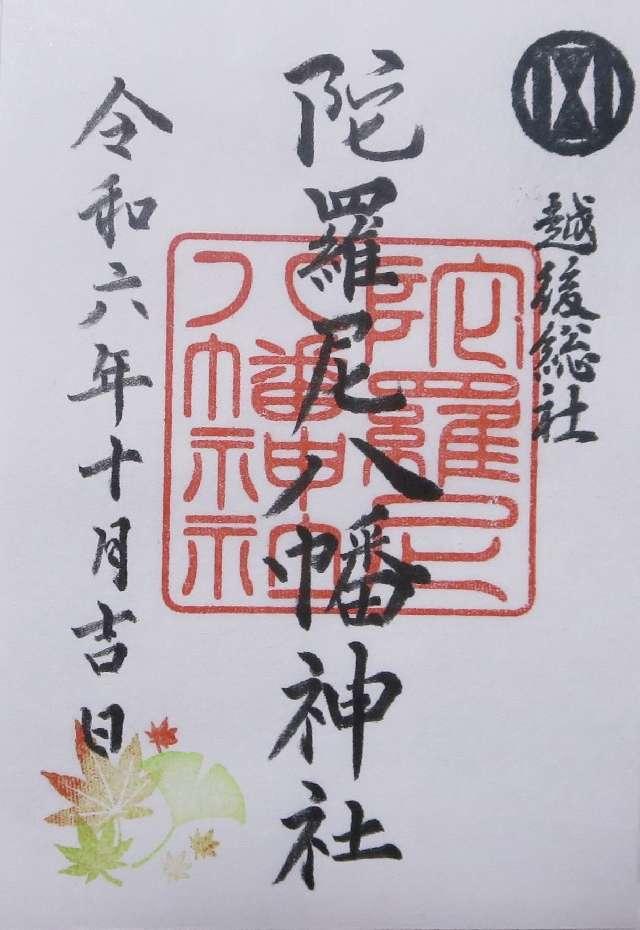 越後総社
陀羅尼八幡神社
陀羅尼
八幡神社
令和六年十月吉日